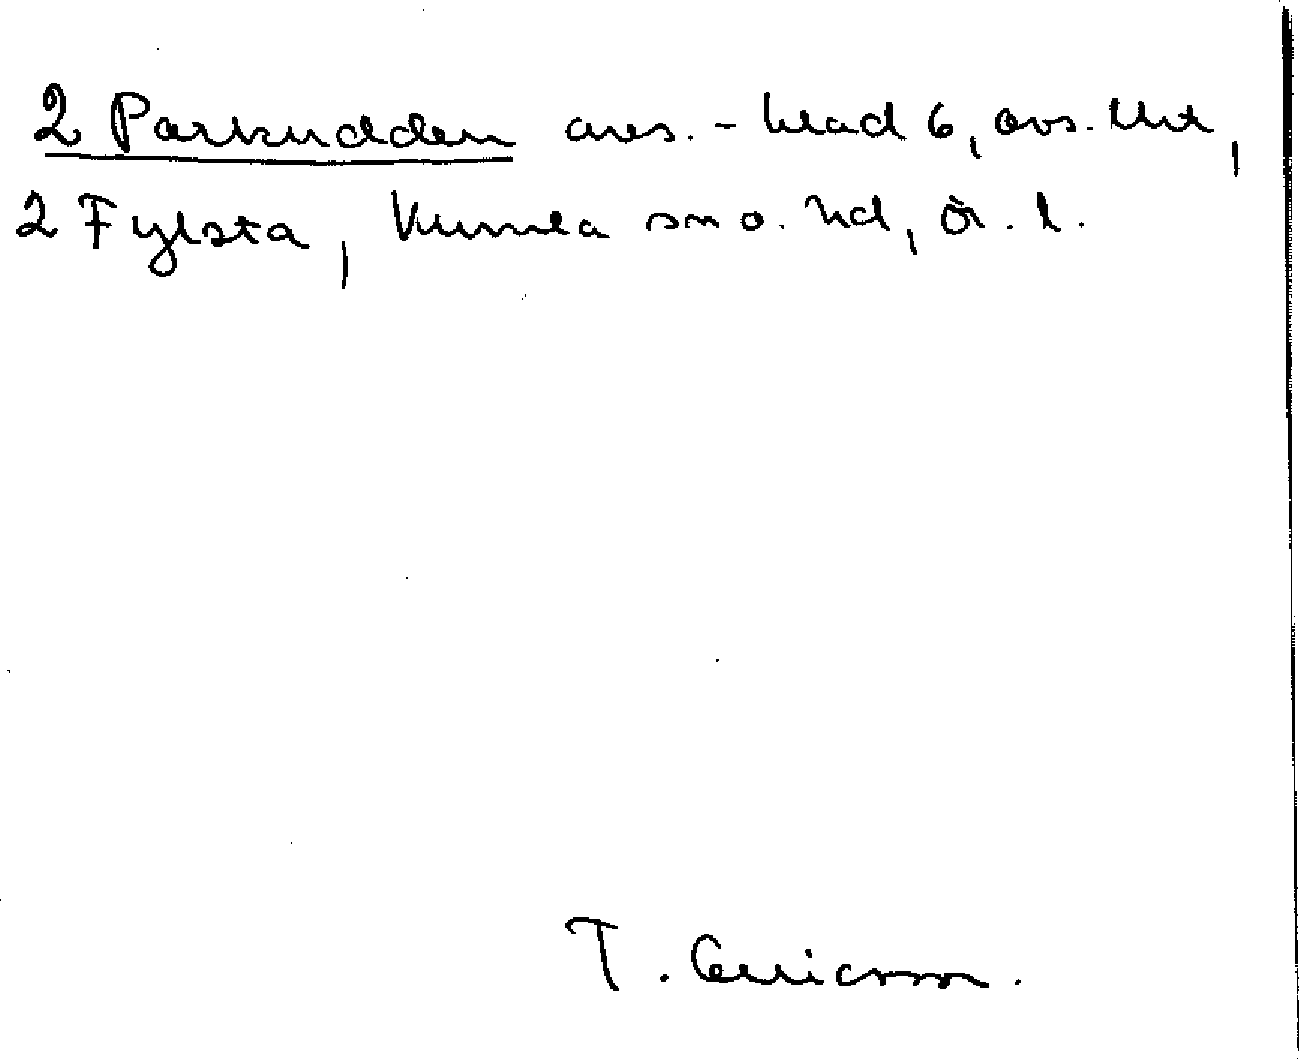 2 Parkudden -blad 6, avs.
2 Fylsta, Kumla sn o. hd, Ör. l.
T. Ericsson.